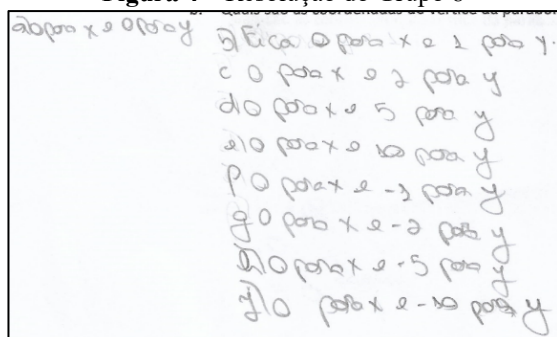 a) 0 para x e 0 para y
b) Fica 0 para x e 1 para y.
c 0 para x e 2 para y
d) 0 para x e 5 para y
e) 0 para x e 10 para y
f) 0 para x e -1 para y
g 0 para x e -2 para y
h) 0 para x e -5 para y
j) 0 para x e -10 para y